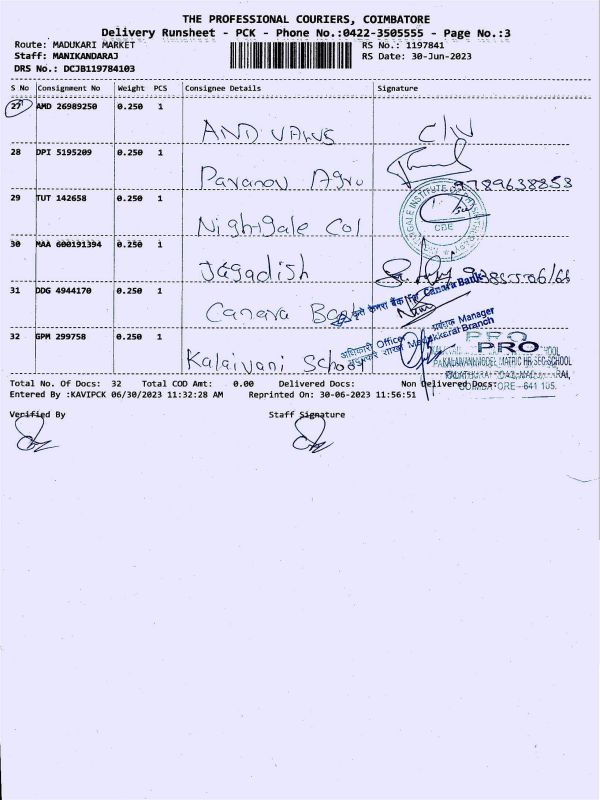 THE PROFESSIONAL COURIERS, COIMBATORE
Delivery Runsheet - PCK - Phone No.:0422-3505555 - Page No.:3
Route: MADUKARI MARKET RS No.: 1197841
Staff: MANIKANDARAJ RS Date: 30-Jun-2023
DRS No.: DCJB119784103
S No Consignment No Weight PCS Consignee Details Signature
27 AMD 26989250 0.250 1
AND VALUS
28 DPI 5195209 0.250 1
Pavanov Agro 9789638853
29 TUT 142658 0.250 1
Nightgale Col
CBE
30 MAA 600191394 0.250 1
Jagadish
31 DDG 4944170 0.250 1
Canara Bank
कृते केनरा बैंक For Canara Bank
प्रबंधक Manager
अधिकारी Officer
Branch
32 GPM 299758 0.250 1
Kalaivani School
PRO
PRO
MATRIC HR.SEC.SCHOOL
COIMBATORE - 641 105.
Total No. Of Docs: 32 Total COD Amt: 0.00 Delivered Docs: Non Delivered Docs:
Entered By :KAVIPCK 06/30/2023 11:32:28 AM Reprinted On: 30-06-2023 11:56:51
Verified By Staff Signature